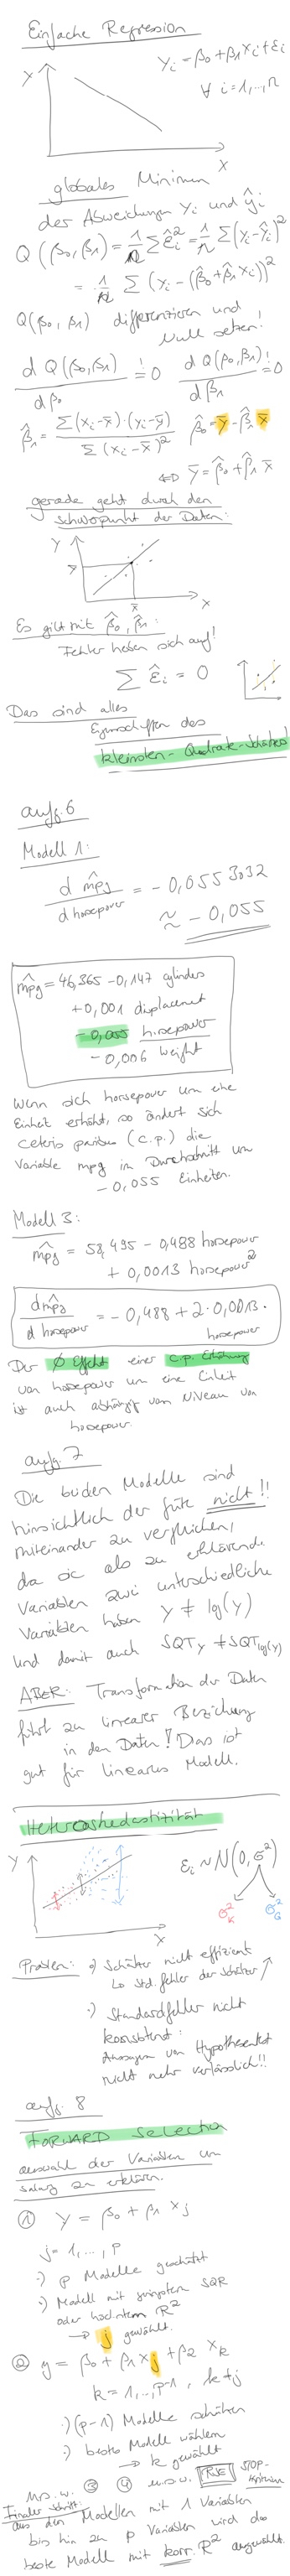 Einfache Regression
Yi = β0 + β1 Xi + εi
∀ i = 1,...,n
Y
X
globales Minimum
der Abweichungen yi und ŷi
Q(β0, β1) = 1/n Σ ε̂i² = 1/n Σ (yi - ŷi)²
= 1/n Σ (yi - (β̂0 + β̂1 xi))²
Q(β0, β1) differenzieren und
Null setzen!
d Q(β0, β1) / dβ0 != 0   d Q(β0, β1) / dβ1 != 0
β̂1 = Σ(xi - x̄)·(yi - ȳ) / Σ(xi - x̄)²   β̂0 = ȳ - β̂1 x̄
⇔ ȳ = β̂0 + β̂1 x̄
gerade geht durch den
Schwerpunkt der Daten:
Y
ȳ
x̄
X
Es gilt mit β̂0, β̂1:
Fehler heben sich auf!
Σ ε̂i = 0
Das sind alles
Eigenschaften des
kleinsten-Quadrate-Schätzers!
aufg. 6
Modell 1:
d mpĝ / d horsepower = - 0,0553032
≈ - 0,055
mpĝ = 46,365 - 0,147 cylinder
+ 0,001 displacement
- 0,055 horsepower
- 0,006 weight
Wenn sich horsepower um eine
Einheit erhöht, so ändert sich
ceteris paribus (c.p.) die
Variable mpg im Durchschnitt um
- 0,055 Einheiten.
Modell 3:
mpĝ = 58,495 - 0,488 horsepower
+ 0,0013 horsepower²
d mpĝ / d horsepower = - 0,488 + 2·0,0013·
horsepower
Der Ø Effekt einer c.p. Erhöhung
von horsepower um eine Einheit
ist auch abhängig vom Niveau von
horsepower.
aufg. 7
Die beiden Modelle sind
hinsichtlich der Güte nicht!!
miteinander zu vergleichen,
da sie als zu erklärende
Variablen zwei unterschiedliche
Variablen haben y ≠ log(y)
und damit auch SQTy ≠ SQTlog(y)
ABER: Transformation der Daten
führt zu linearer Beziehung
in den Daten! Das ist
gut für lineares Modell.
Heteroskedastizität
Y
X
εi ~ N(0, σ²)
σ²K   σ²G
Problem: ·) Schätzer nicht effizient
↳ Std.fehler der Schätzer ↑
·) Standardfehler nicht
konsistent:
Aussagen von Hypothesentest
nicht mehr verlässlich!!
aufg. 8
FORWARD Selection
auswahl der Variablen um
salary zu erklären.
① y = β0 + β1 xj
j = 1,...,p
·) p Modelle geschätzt
·) Modell mit geringstem SQR
oder höchstem R²
→ j gewählt.
② y = β0 + β1 xj + β2 xk
k = 1,...,p-1, k ≠ j
·) (p-1) Modelle schätzen
·) bestes Modell wählen
→ k gewählt
u.s.w. ③ ④ u.s.w. RSE STOP-
Kriterium
Finaler Schritt:
aus den Modellen mit 1 Variablen
bis hin zu p Variablen wird das
beste Modell mit korr. R² ausgewählt.